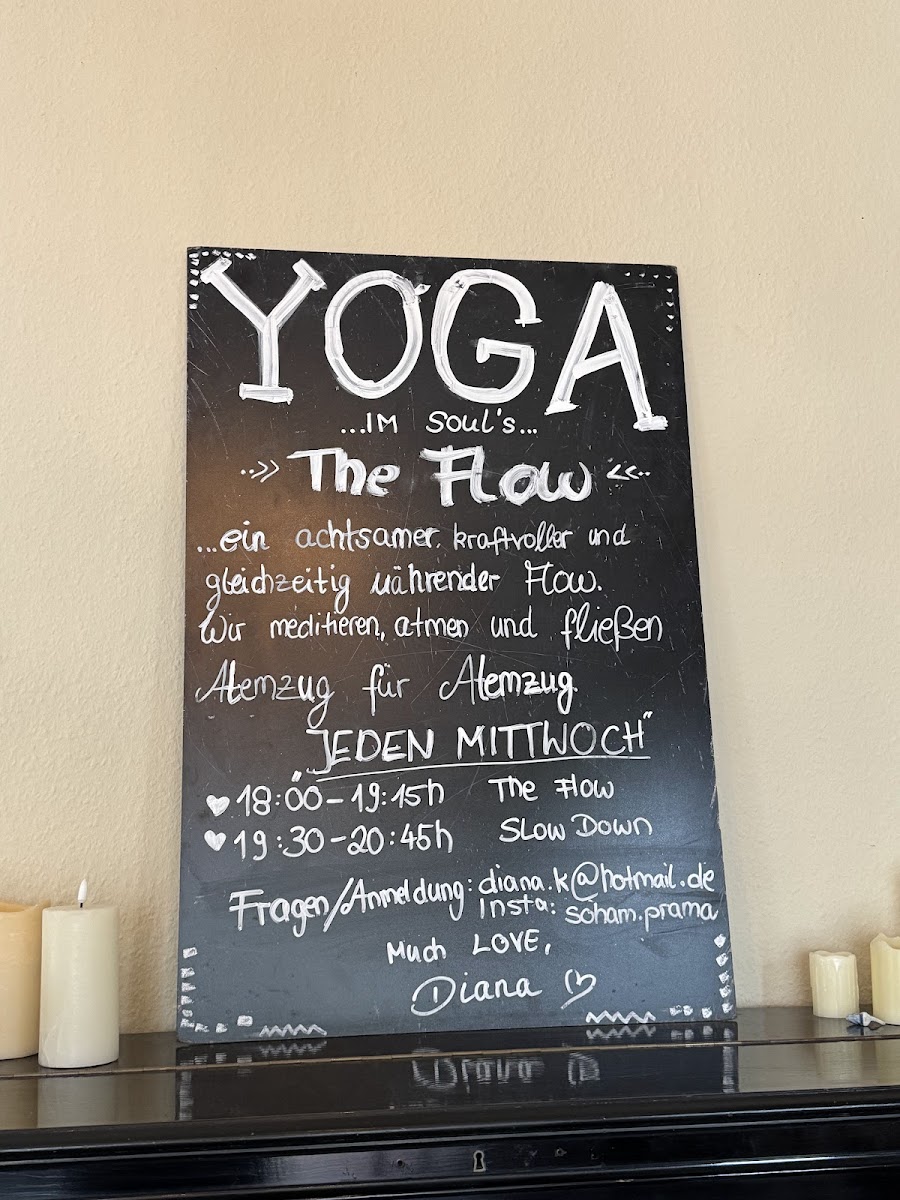 YOGA
...IM Soul's...
The Flow
...ein achtsamer, kraftvoller und
gleichzeitig nährender Flow.
Wir meditieren, atmen und fließen
Atemzug für Atemzug.
"JEDEN MITTWOCH"
♥ 18:00-19:15h The Flow
♥ 19:30-20:45h Slow Down
Fragen/Anmeldung: diana.k@hotmail.de
Insta: soham.prama
Much LOVE,
Diana ♡